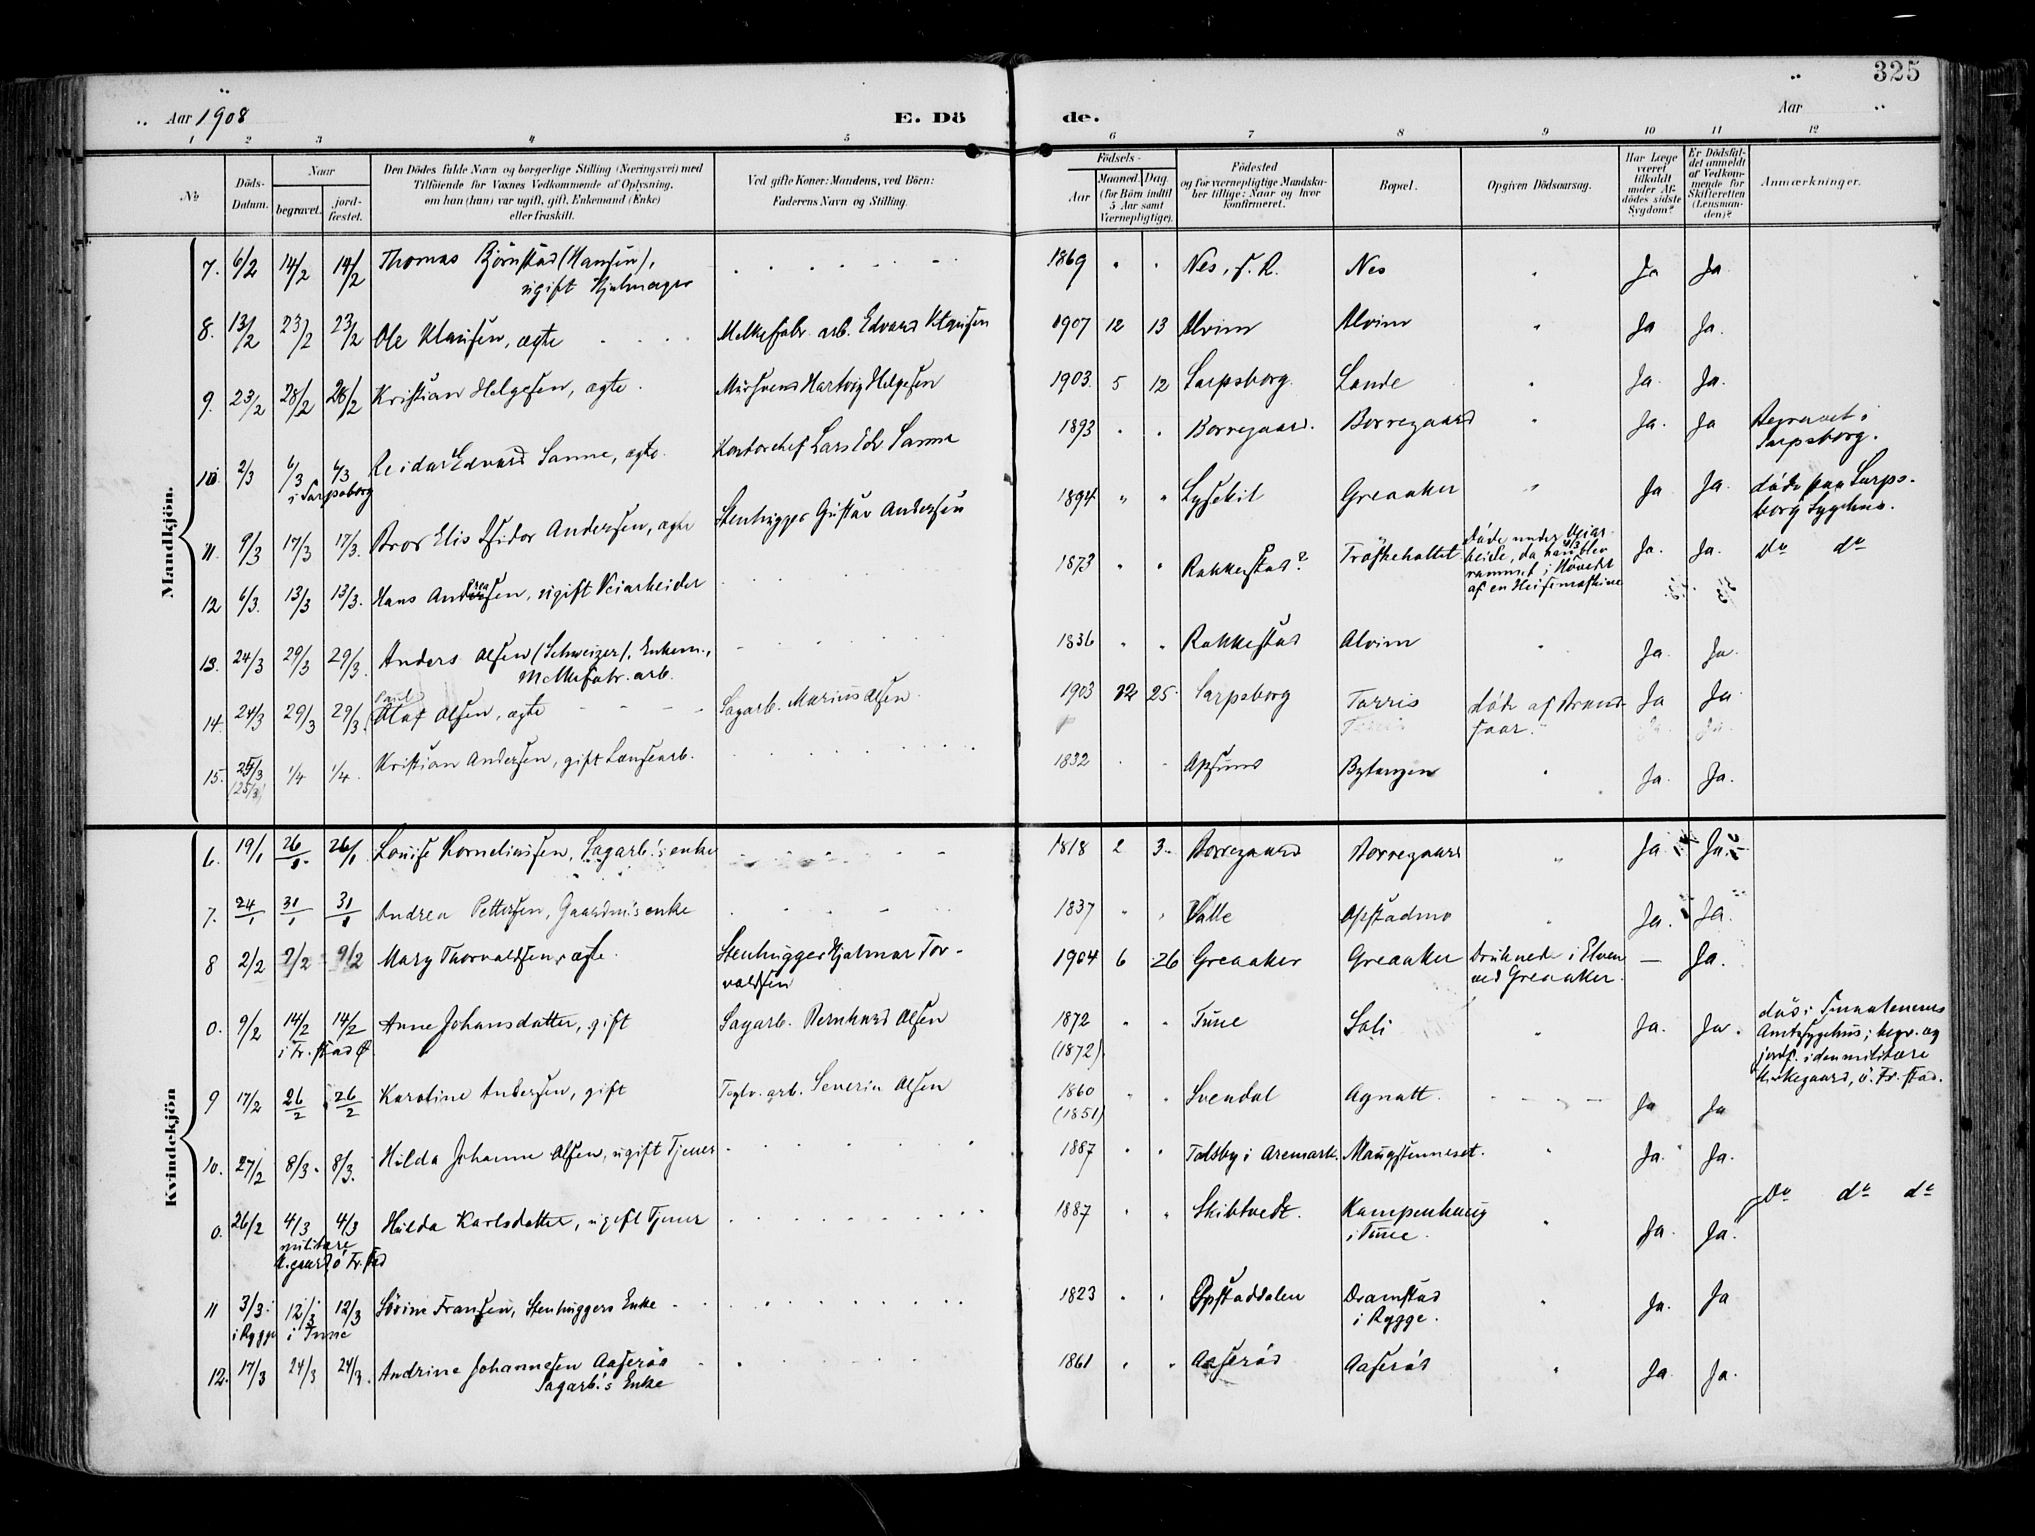 325
Aar 1908
E. Dö
de.
Aar
1 2 3 4 5 6 7 8 9 10 11 12
No
Döds-Datum.
Naar
begravet.
jord-fæstet.
Den Dödes fulde Navn og borgerlige Stilling (Næringsvei) med
Tilföiende for Voxnes Vedkommende af Oplysning,
om han (hun) var ugift, gift, Enkemand (Enke)
eller fraskilt.
Ved gifte Koner: Mandens, ved Börn:
Faderens Navn og Stilling.
Födsels-
Aar
Maaned. Dag.
(for Börn indtil
5 Aar samt
Værnepligtige).
Födested
og for værnepligtige Mandska-
ber tillige: Naar og hvor
konfirmeret.
Bopæl.
Opgiven Dödsaarsag.
Har Læge
været
tilkaldt
under Af-
dödes sidste
Sygdom?
Er Dödsfal-
det anmeldt
af Vedkom-
mende for
Skifteretten
(Lensman-
den)?
Anmærkninger.
Mandkjön.
7. 6/2 14/2 14/2 Thomas Björnstad (Hansen), 1869 " " Nes, s. R. Nes " Ja Ja
ugift Hjulmager
8. 13/2 23/2 23/2 Ole Klausen, ægte Melkefabr. arb. Edvard Klausen 1907 12 13 Alvim Alvim " Ja Ja.
9. 23/2 28/2 28/2 Kristian Helgesen, ægte. Mursvend Hartvig Helgesen 1903. 5 12 Sarpsborg. Lande " Ja. Ja.
10 2/3 6/3 6/3 Reidar Edvard Sanne, ægte. Kontorchef Lars Edv Sanne 1893 " " Borregaard. Borregaard " Ja. Ja Begravet i
i Sarpsborg
Sarpsborg.
11. 9/3 17/3 17/3. Bror Elis Isidor Andersen, ægte Stenhugger Gustav Andersen 1894 " " Lysekil Greaaker " Ja Ja. döde paa Sarps-
borg Sygehus.
12 6/3. 13/3 13/3. Hans Andersen, ugift Veiarbeider 1873 " " Rakkestad? Tröskeholtet döde under Veiar-
beide, da han blev
rammet i Hovedet
af en Heisemaskine Ja. Ja. Do do
13. 24/3 29/3 29/3. Anders Olsen (Schweizer), Enkem., 1836 " " Rakkestad Alvim " Ja. Ja.
Melkefabr. arb.
14. 24/3 29/3 29/3. Olaf Olsen, ægte Sagarb. Marius Olsen. 1903 12 25. Sarpsborg Torris döde af Brand-
saar. Ja Ja
15. 25/3 1/4 1/4. Kristian Andersen, gift Lænsearb. 1832 " " Opsund Bytangen " Ja. Ja.
(25/3)
Kvindekjön
6. 19/1 26/1. 26/1 Louise Korneliusen, Sagarb.'s enke 1818 2 3. Borregaard Borregaard " Ja Ja.
7. 24/1 31/1 31/1 Andrea Pettersen, Gaardm.'s enke 1837 " " Valle Opstadmo " Ja. Ja.
8 2/2 9/2 9/2 Mary Thorvaldsen, ægte. Stenhugger Hjalmar Tor-
valdsen 1904 6 26 Greaaker Greaaker Druknede i Elven
ved Greaaker. — Ja.
0. 9/2 14/2 14/2 Anne Johansdatter, gift Sagarb. Bernhard Olsen 1872 " " Tune Soli " Ja. Ja. död i Smaalenenes
i Fr. stad (1872)
Amtssygehus; begr. og
jordf. i den militære
Kirkegaard, ö. Fr. stad.
9 17/2 26/2 26/2 Karoline Andersen, gift Teglv. arb. Severin Olsen 1860 " " Svendal Agnalt. Ja Ja
(1851)
10. 27/2 8/3. 8/3. Hilda Johanne Olsen, ugift Tjener 1887 " " Tolsby i Aremark. Maugstenneset. " Ja. Ja.
0. 26/2 4/3 4/3 Hulda Karlsdatter, ugift Tjener 1887 " " Skibtvedt. Kampenhaug
i Tune. " Ja. Ja. Do do do
militære
K.gaard ö Fr. stad
11 3/3. 12/3 12/3 Sörine Fransen, Stenhuggers Enke 1823 " " Opstaddalen Dramstad
i Rygge. " Ja. Ja
i Rygge i Tune
12. 17/3 24/3 24/3. Andrine Johannesen Aaseröd 1861 " " Aaseröd Aaseröd " Ja. Ja.
Sagarb.'s Enke